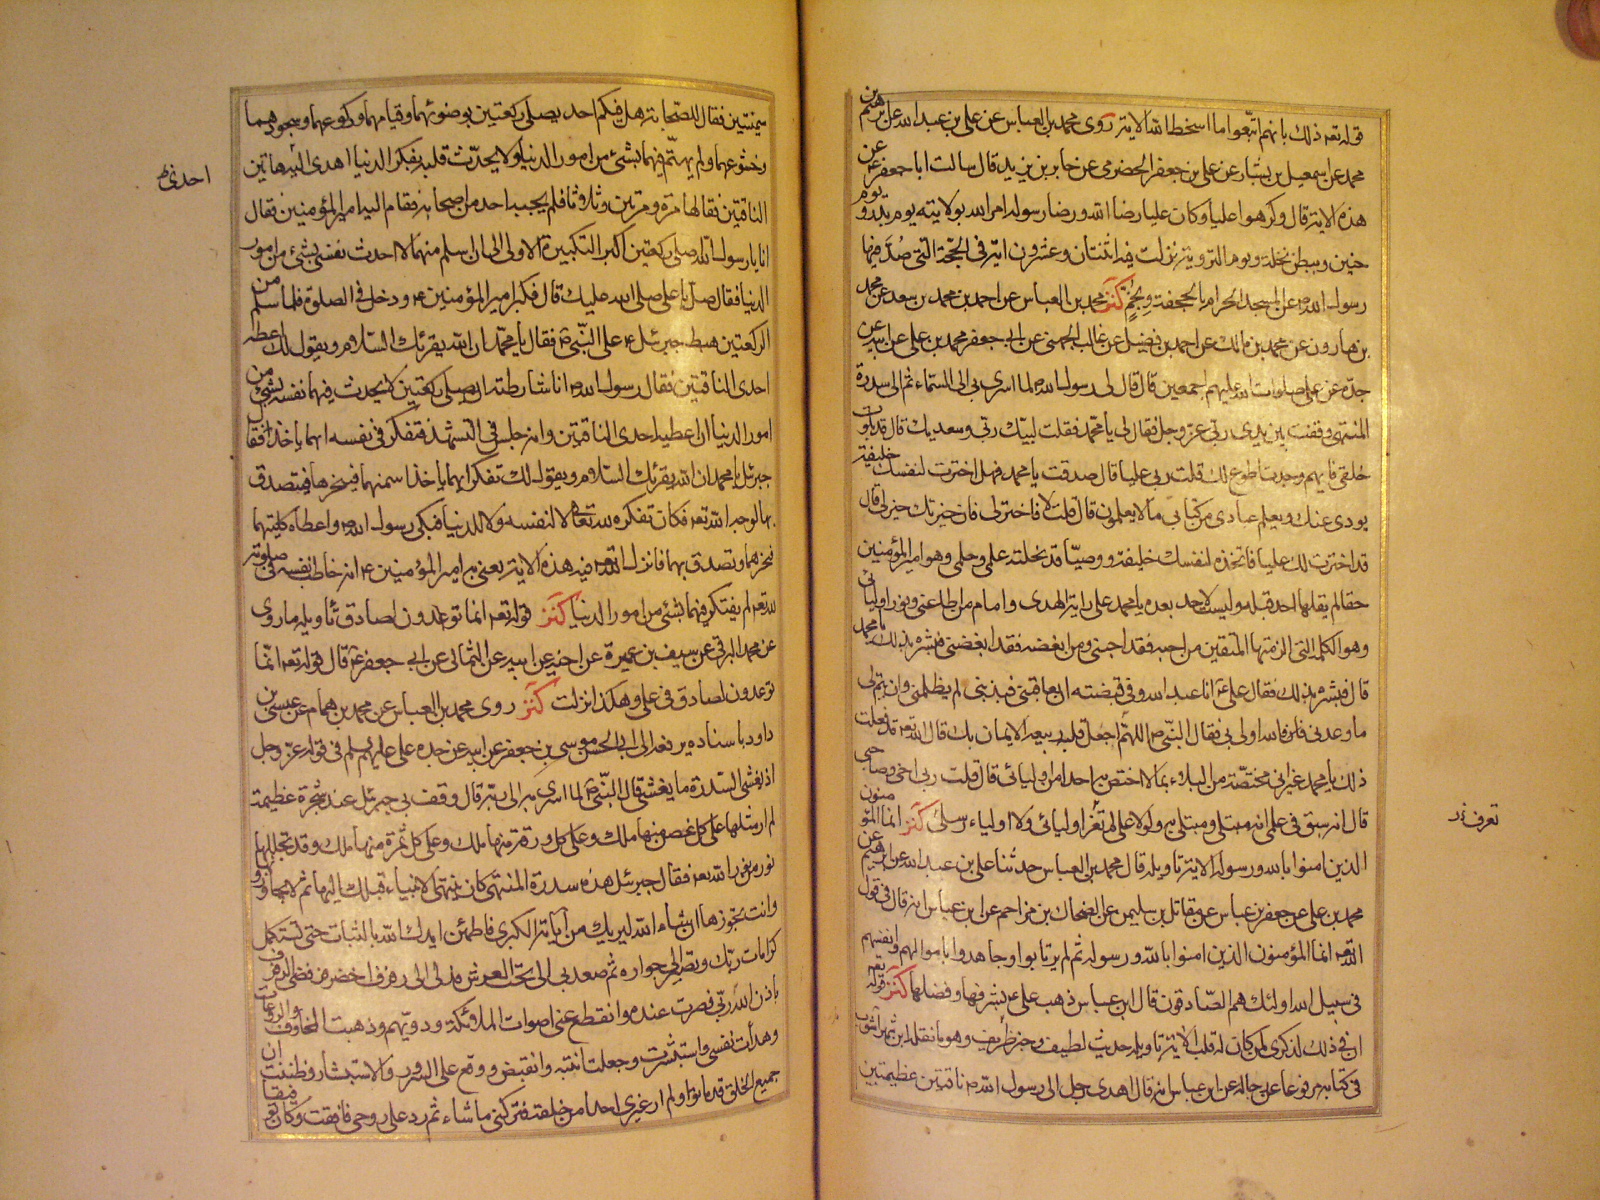 قوله تعه ذلك بانهم اتبعوا ما اسخط الله الاية روى محمد بن العباس عن علي بن عبد الله عن ابرهيم بن
محمد عن اسمعيل بن بشار عن علي بن جعفر الحضرمي عن جابر بن يزيد قال سالت ابا جعفر ع عن
هذه الاية قال وكرهوا عليا وكان عليا رضا الله ورضا رسوله امر الله بولايته يوم بدر ويوم
حنين وببطن نخلة ويوم التروية نزلت فيه اثنتان وعشرون اية في الحجة التي صُدّ فيها
رسول الله ص عن المسجد الحرام بالجحفة وبخُمٍّ كنز محمد بن العباس عن احمد بن محمد بن سعيد عن محمد
بن هارون عن محمد بن مالك عن احمد بن فضيل عن غالب الجهني عن ابي جعفر محمد بن علي عن ابيه عن
جدّه عن علي صلوات الله عليهم اجمعين قال قال لي رسول الله ص لما اسري بي الى السماء ثم الى سدرة
المنتهى وقفت بين يدي ربي عز وجل فقال لي يا محمد فقلت لبيك ربي وسعديك قال قد بلوت
خلقي فايهم وجدت اطوع لك قلت ربي عليا قال صدقت يا محمد فهل اخترت لنفسك خليفة
يودي عنك ويعلم عبادي من كتابي ما لا يعلمون قال قلت لا فاختر لي فان خيرتك خير لي قال
قد اخترت لك عليا فاتخذه لنفسك خليفة ووصيّا قد نحلته علمي وحلمي وهو امير المؤمنين
حقا لم يقلها احد قبله وليست لاحد بعده يا محمد علي راية الهدى وامام من اطاعني ونور اوليائي
وهو الكلمة التي الزمتها المتقين من احبه فقد احبني ومن ابغضه فقد ابغضني فبشره بذلك يا محمد
قال فبشره بذلك فقال علي ع انا عبد الله وفي قبضته ان يعاقبني فبذنبي لم يظلمني وان يتم لي
ما وعدني فالله اولى بي فقال النبي ص اللهم اجعل قلبه ربيعه الايمان بك قال الله تعه قد فعلت
ذلك يا محمد غير اني مختصّه من البلاء بما لا اختص به احدا من اوليائي قال قلت ربي اخي وصاحبي
قال انه سبق في علمي انه مبتلى ومبتلى به ولولا علي لم تعرف اوليائي ولا اولياء رسلي كنز انما المؤمنون
الذين امنوا بالله ورسوله الاية تاويله قال محمد بن العباس حدثنا علي بن عبد الله عن ابرهيم عن
محمد بن علي عن جعفر بن عباس عن مقاتل بن سليمن عن الضحاك بن مزاحم عن ابن عباس انه قال في قول
الله تعه انما المؤمنون الذين امنوا بالله ورسوله ثم لم يرتابوا وجاهدوا باموالهم وانفسهم
في سبيل الله اولئك هم الصّادقون قال ابن عباس ذهب علي ع بشرفها وفضلها كنز قوله تعه
ان في ذلك لذكرى لمن كان له قلب الاية تاويله حديث لطيف وخبر ظريف وهو ما نقله ابن شهر اشوب
في كتابه مرفوعا عن رجاله عن ابن عباس انه قال اهدى رجل الى رسول الله ص ناقتين عظيمتين
تعرف
سمينتين فقال للصحابة هل فيكم احد يصلي ركعتين بوضوئهما وقيامهما وركوعهما وسجودهما
وخشوعهما ولم يهتم فيهما بشئ من امور الدنيا ولا يحدّث قلبه بفكر الدنيا اهدى اليه هاتين
الناقتين فقالها مرة ومرتين وثلاثا فلم يجبه احد من اصحابه فقام اليه امير المؤمنين فقال
انا يا رسول الله اصلي ركعتين اكبر التكبيرة الاولى الى ان اسلم منهما لا احدث نفسي بشئ من امور
الدنيا فقال صل يا علي صلى الله عليك قال فكبر امير المؤمنين ع ودخل في الصلوة فلما سلم من
الركعتين هبط جبرئيل ع على النبي ص فقال يا محمد ان الله يقرئك السلام ويقول لك اعطه
احدى الناقتين فقال رسول الله ص انا شارطته ان يصلي ركعتين لا يحدث فيهما نفسه بشئ من
امور الدنيا ان اعطيه احدى الناقتين وانه جلس في التشهد فتفكر في نفسه ايهما ياخذ فقال
جبرئيل يا محمد ان الله يقرئك السلام ويقول لك تفكر ايهما ياخذ اسمنهما فينحرها فيتصدق
بها لوجه الله تعه فكان تفكره لله تعالى لا لنفسه ولا للدنيا فبكى رسول الله ص واعطاه كليتهما
فنحرهما وتصدق بهما فانزل الله تعه فيه هذه الاية يعني به امير المؤمنين ع انه خاطب نفسه في صلوته
لله تعه لم يتفكر فيهما بشئ من امور الدنيا كنز قوله تعه انما توعدون لصادق تاويله ما روي
عن محمد البرقي عن سيف بن عميرة عن اخيه عن ابيه عن الثمالي عن ابي جعفر ع قال قوله تعه انما
توعدون لصادق في علي وهكذا نزلت كنز روى محمد بن العباس عن محمد بن همام عن عيسى بن
داود باسناده يرفعه الى ابي الحسن موسى بن جعفر عن ابيه عن جده علي عليهم السلم في قوله عز وجل
اذ يغشى السدرة ما يغشى قال النبي ص لما اسري به الى ربه قال وقف بي جبرئيل عند شجرة عظيمة
لم ار مثلها على كل غصن منها ملك وعلى كل ورقة منها ملك وعلى كل ثمرة منها ملك وقد تجللها
نور من نور الله تعه فقال جبرئيل هذه سدرة المنتهى كان ينتهي الانبياء قبلك اليها ثم لا يتجاوزونها
وانت تجوزها ان شاء الله ليريك من آياته الكبرى فاطمئن ايدك الله بالثبات حتى تستكمل
كرامات ربك وتصير الى جواره ثم صعد بي الى تحت العرش فدلى الى رفرف اخضر
باذن الله ربي فصرت عنده وانقطع عني اصوات الملائكة ودويهم وذهبت المخاوف والروعات
وهدأت نفسي واستبشرت وجعلت انتبه وانقبض ووقع علي السرور والاستبشار وظننت ان
جميع الخلق قد ماتوا ولم ار غيري احدا من خلقه فتركني ما شاء ثم رد علي روحي فافقت وكان
احدى